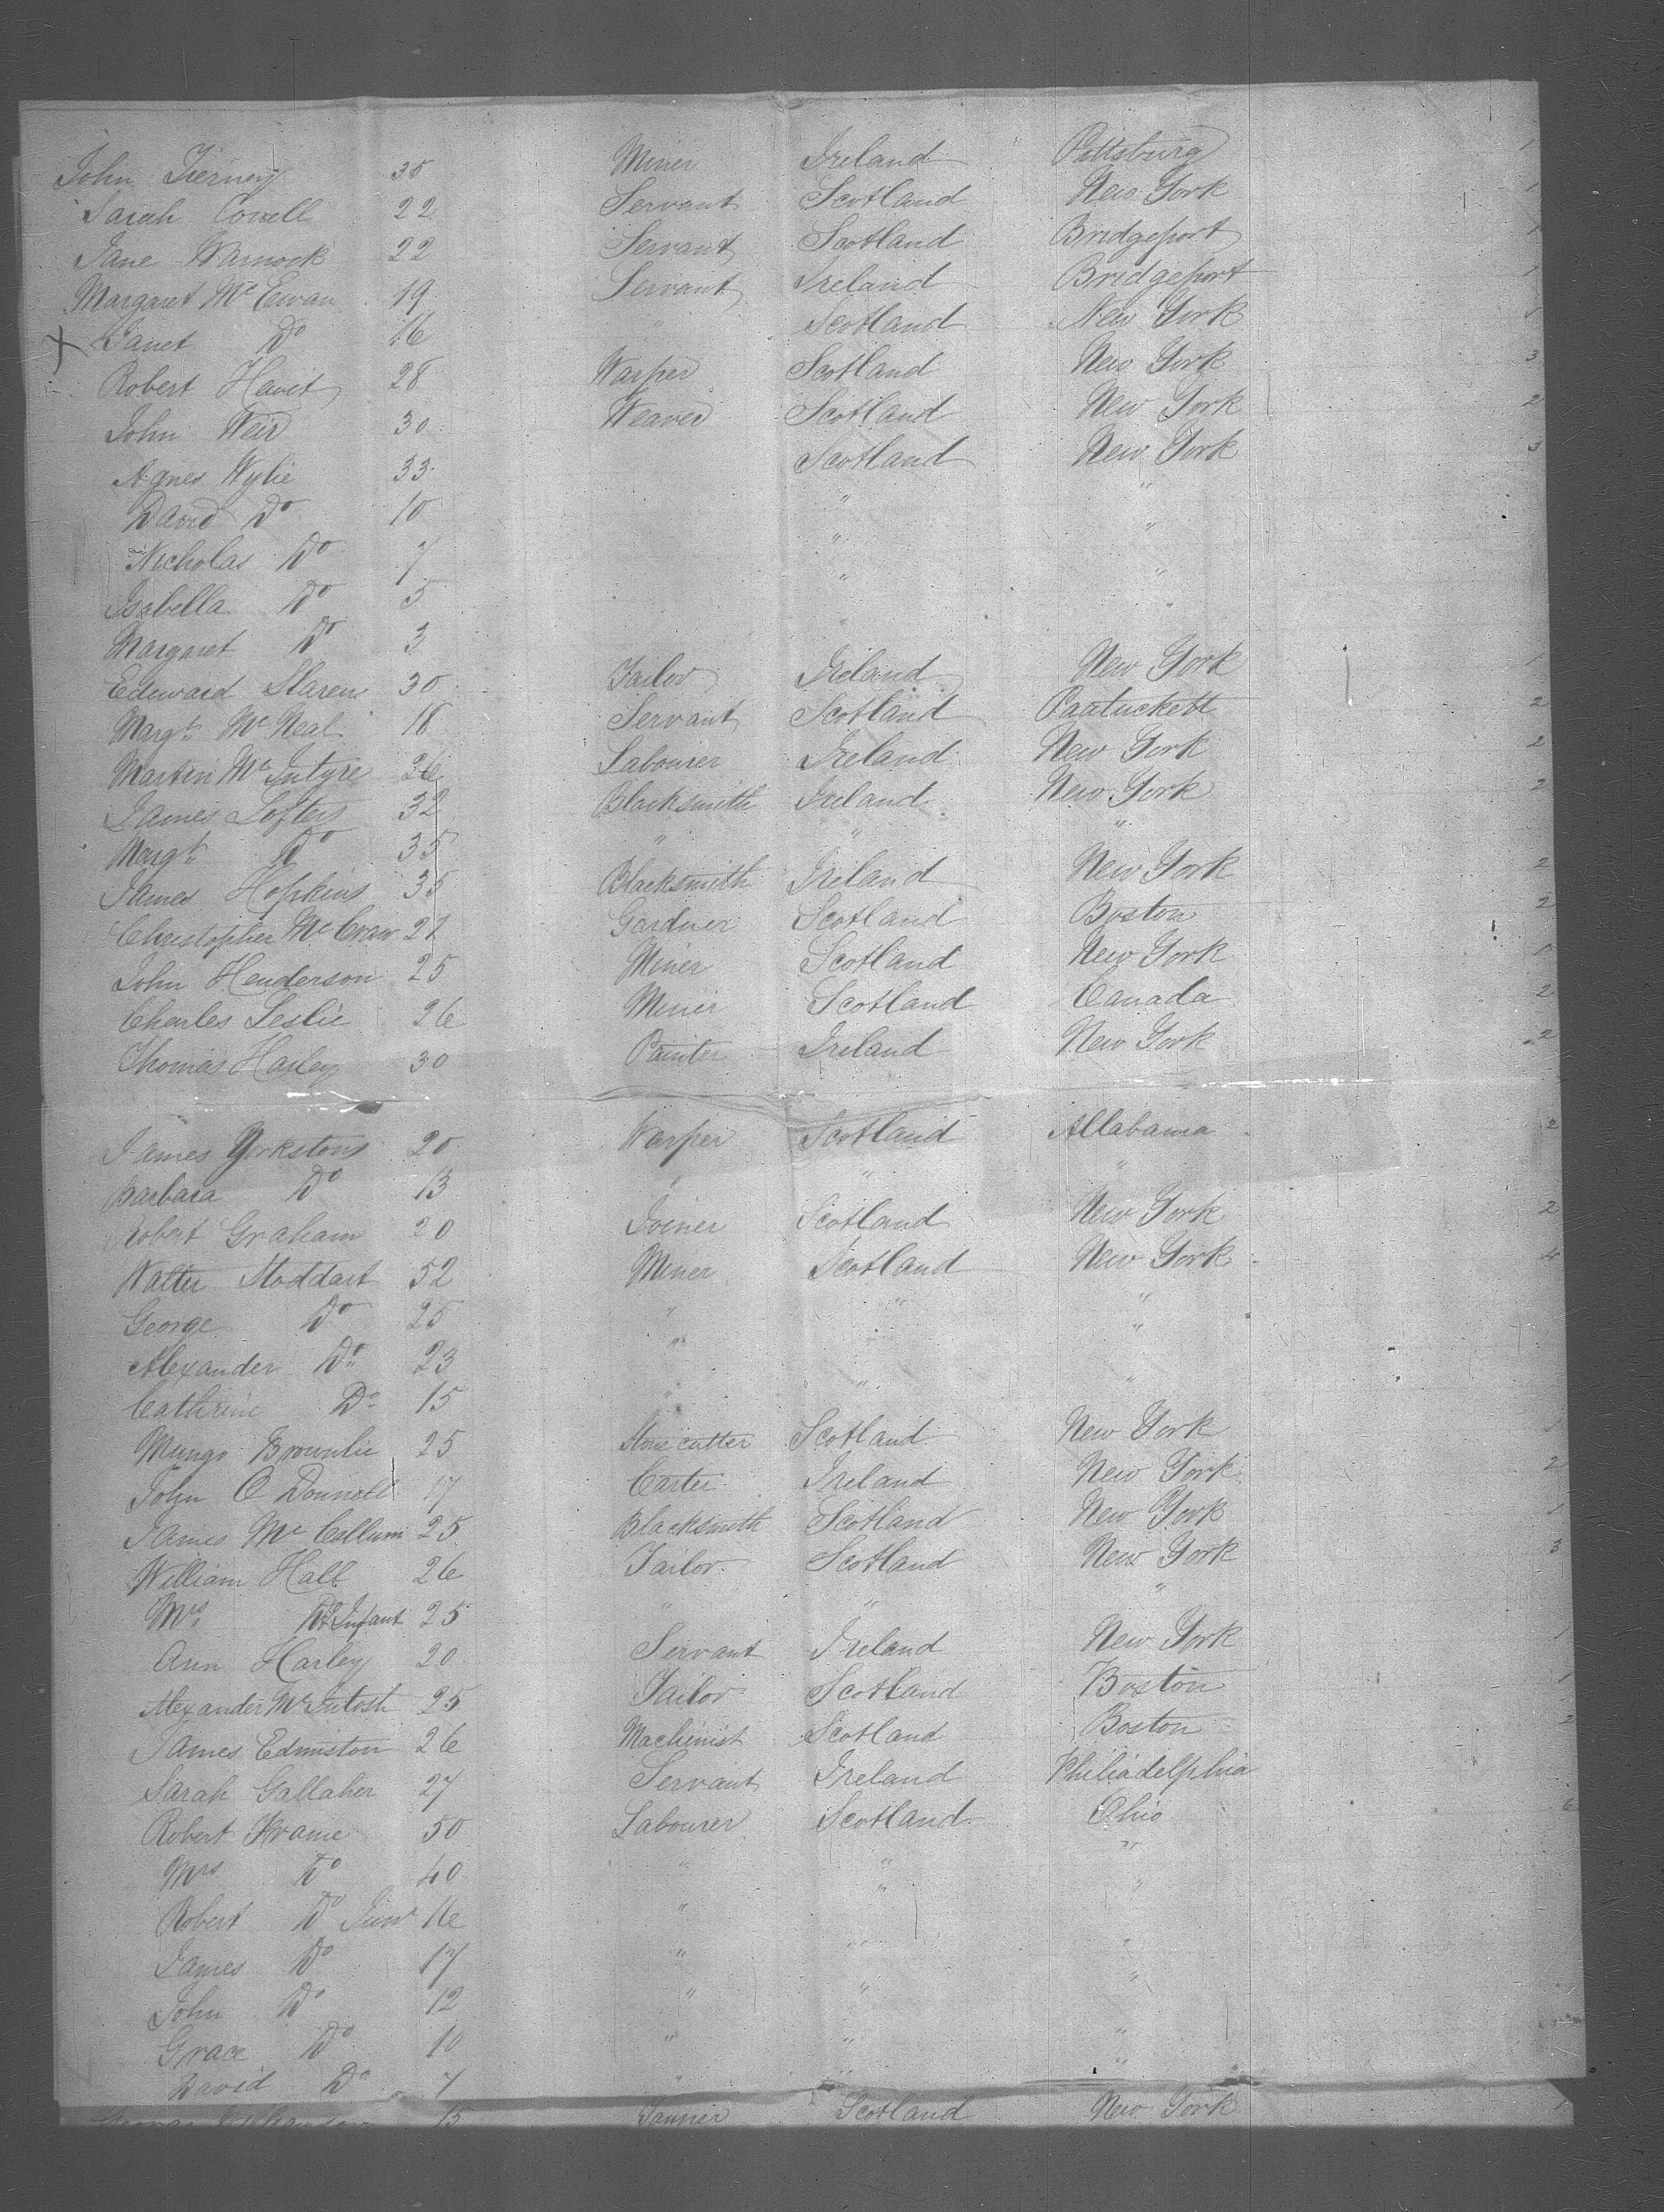 John Tierney 35 Miner Ireland Pittsburg 1
Sarah Connell 22 Servant Scotland New York 1
Jane Warnock 22 Servant Scotland Bridgeport 1
Margaret Mc Ewan 19 Servant Ireland Bridgeport 1
X Janet Do 16 " Scotland New York 1
Robert Havit 28 Warper Scotland New York 3
John Weir 30 Weaver Scotland New York 2
Agnes Wylie 33 Scotland New York 3
David Do 10 " "
Nicholas Do 7 " "
Isabella Do 5 " "
Margaret Do 3 " "
Edward Slaren 30 Tailor Ireland New York 1
Margt Mc Neal 18 Servant Scotland Pautuckett 2
Martin Mc Intyre 26 Labourer Ireland New York 2
James Loftus 32 Blacksmith Ireland New York 2
Margt Do 35 " " "
James Hopkins 35 Blacksmith Ireland New York 2
Christopher Mc Craw 21 Gardner Scotland Boston 2
John Henderson 25 Miner Scotland New York 1
Charles Leslie 26 Miner Scotland Canada 2
Thomas Harley 30 Painter Ireland New York 2
James Yorkstons 20 Warper Scotland Allabama 2
Barbara Do 13 " " "
Robert Graham 20 Joiner Scotland New York 2
Walter Stoddart 52 Miner Scotland New York 4
George Do 25 " " "
Alexander Do 23 " " "
Cathrine Do 15 " " "
Mungo Brownlie 25 Stone cutter Scotland New York 1
John O Donnell 17 Carter Ireland New York 2
James Mc Callum 25 Blacksmith Scotland New York 1
William Hall 26 Tailor Scotland New York 3
Mrs Do & Infant 25 " " "
Ann Harley 20 Servant Ireland New York 1
Alexander McIntosh 25 Tailor Scotland Boston 1
James Edmiston 26 Machinist Scotland Boston 2
Sarah Gallaher 27 Servant Ireland Philiadelphia
Robert Frame 50 Labourer Scotland Ohio 6
Mrs Do 40 " " "
Robert Do Junr 16 " " "
James Do 17 " " "
John Do 12 " " "
Grace Do 10 " " "
David Do 7 " " "
15 Tanner Scotland New York 1